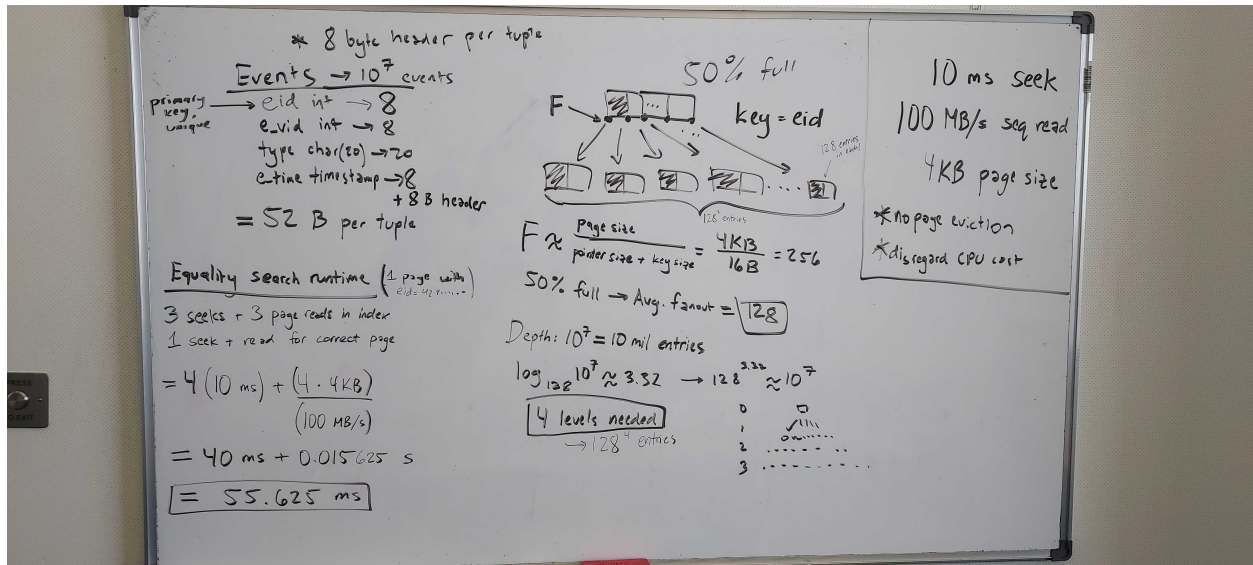 * 8 byte header per tuple
Events → 10^7 events
primary key, unique → eid int → 8
e_vid int → 8
type char(20) → 20
etime timestamp → 8
+ 8 B header
= 52 B per tuple
Equality search runtime (1 page with
3 seeks + 3 page reads in index
1 seek + read for correct page
= 4 (10 ms) + (4 · 4KB)
(100 MB/s)
= 40 ms + 0.015625 s
= 55.625 ms
50% full
F
...
key = eid
...
128 entries
in each!
....
128^4 entries
F ≈ Page size / pointer size + key size = 4KB / 16B = 256
50% full → Avg. fanout = 128
Depth: 10^7 = 10 mil entries
log_128 10^7 ≈ 3.32 → 128^3.32 ≈ 10^7
4 levels needed
→ 128^4 entries
0
1
2
3
10 ms seek
100 MB/s seq read
4KB page size
* no page eviction
* disregard CPU cost
PRESS